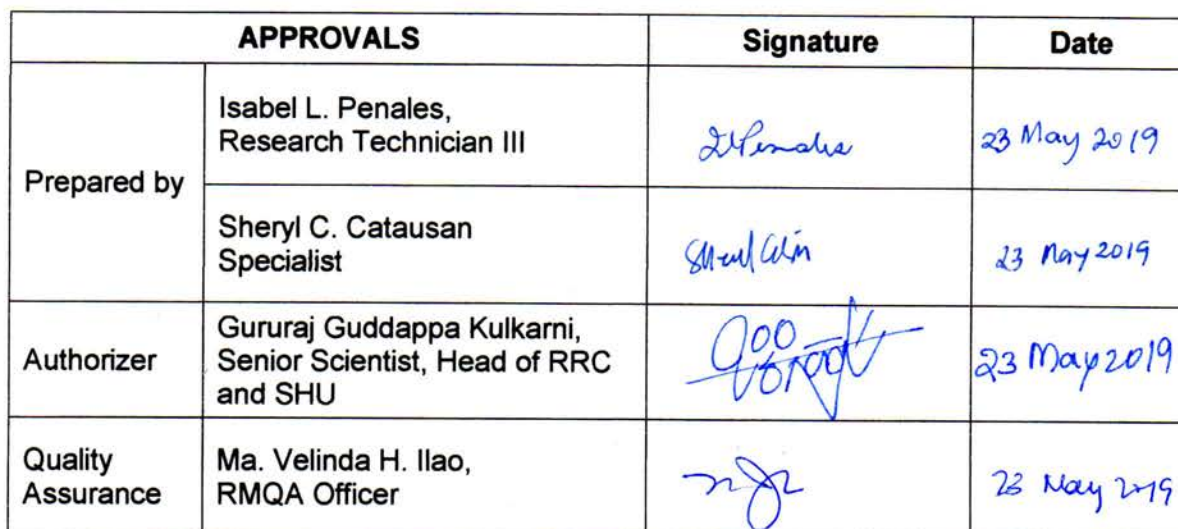 APPROVALS Signature Date
Prepared by
Isabel L. Penales,
Research Technician III
23 May 2019
Sheryl C. Catausan
Specialist
23 May 2019
Authorizer
Gururaj Guddappa Kulkarni,
Senior Scientist, Head of RRC
and SHU
23 May 2019
Quality
Assurance
Ma. Velinda H. Ilao,
RMQA Officer
23 May 2019